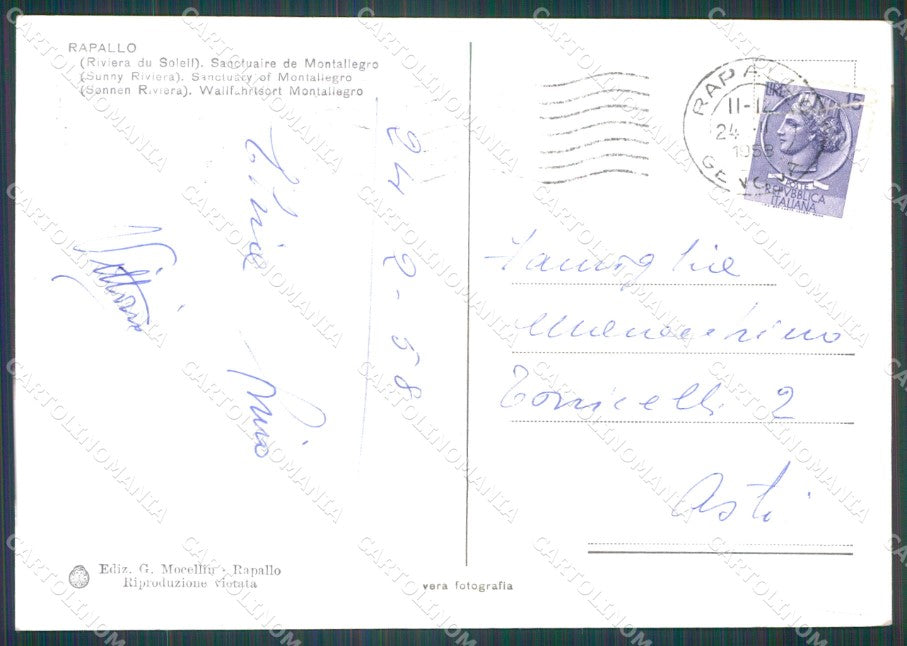 RAPALLO
(Riviera du Soleil). Sanctuaire de Montallegro
(Sunny Riviera). Sanctuary of Montallegro
(Sonnen Riviera). Wallfahrtsort Montallegro
24 2-58
Pinio
Vittorio
RAPALLO
11-12
24
1958
GENOVA
LIRE 15
POSTE
REPVBBLICA
ITALIANA
Famiglia
Torricelli 2
Asti
Ediz. G. Mocellin - Rapallo
Riproduzione vietata
vera fotografia
CARTOLINOMANIA